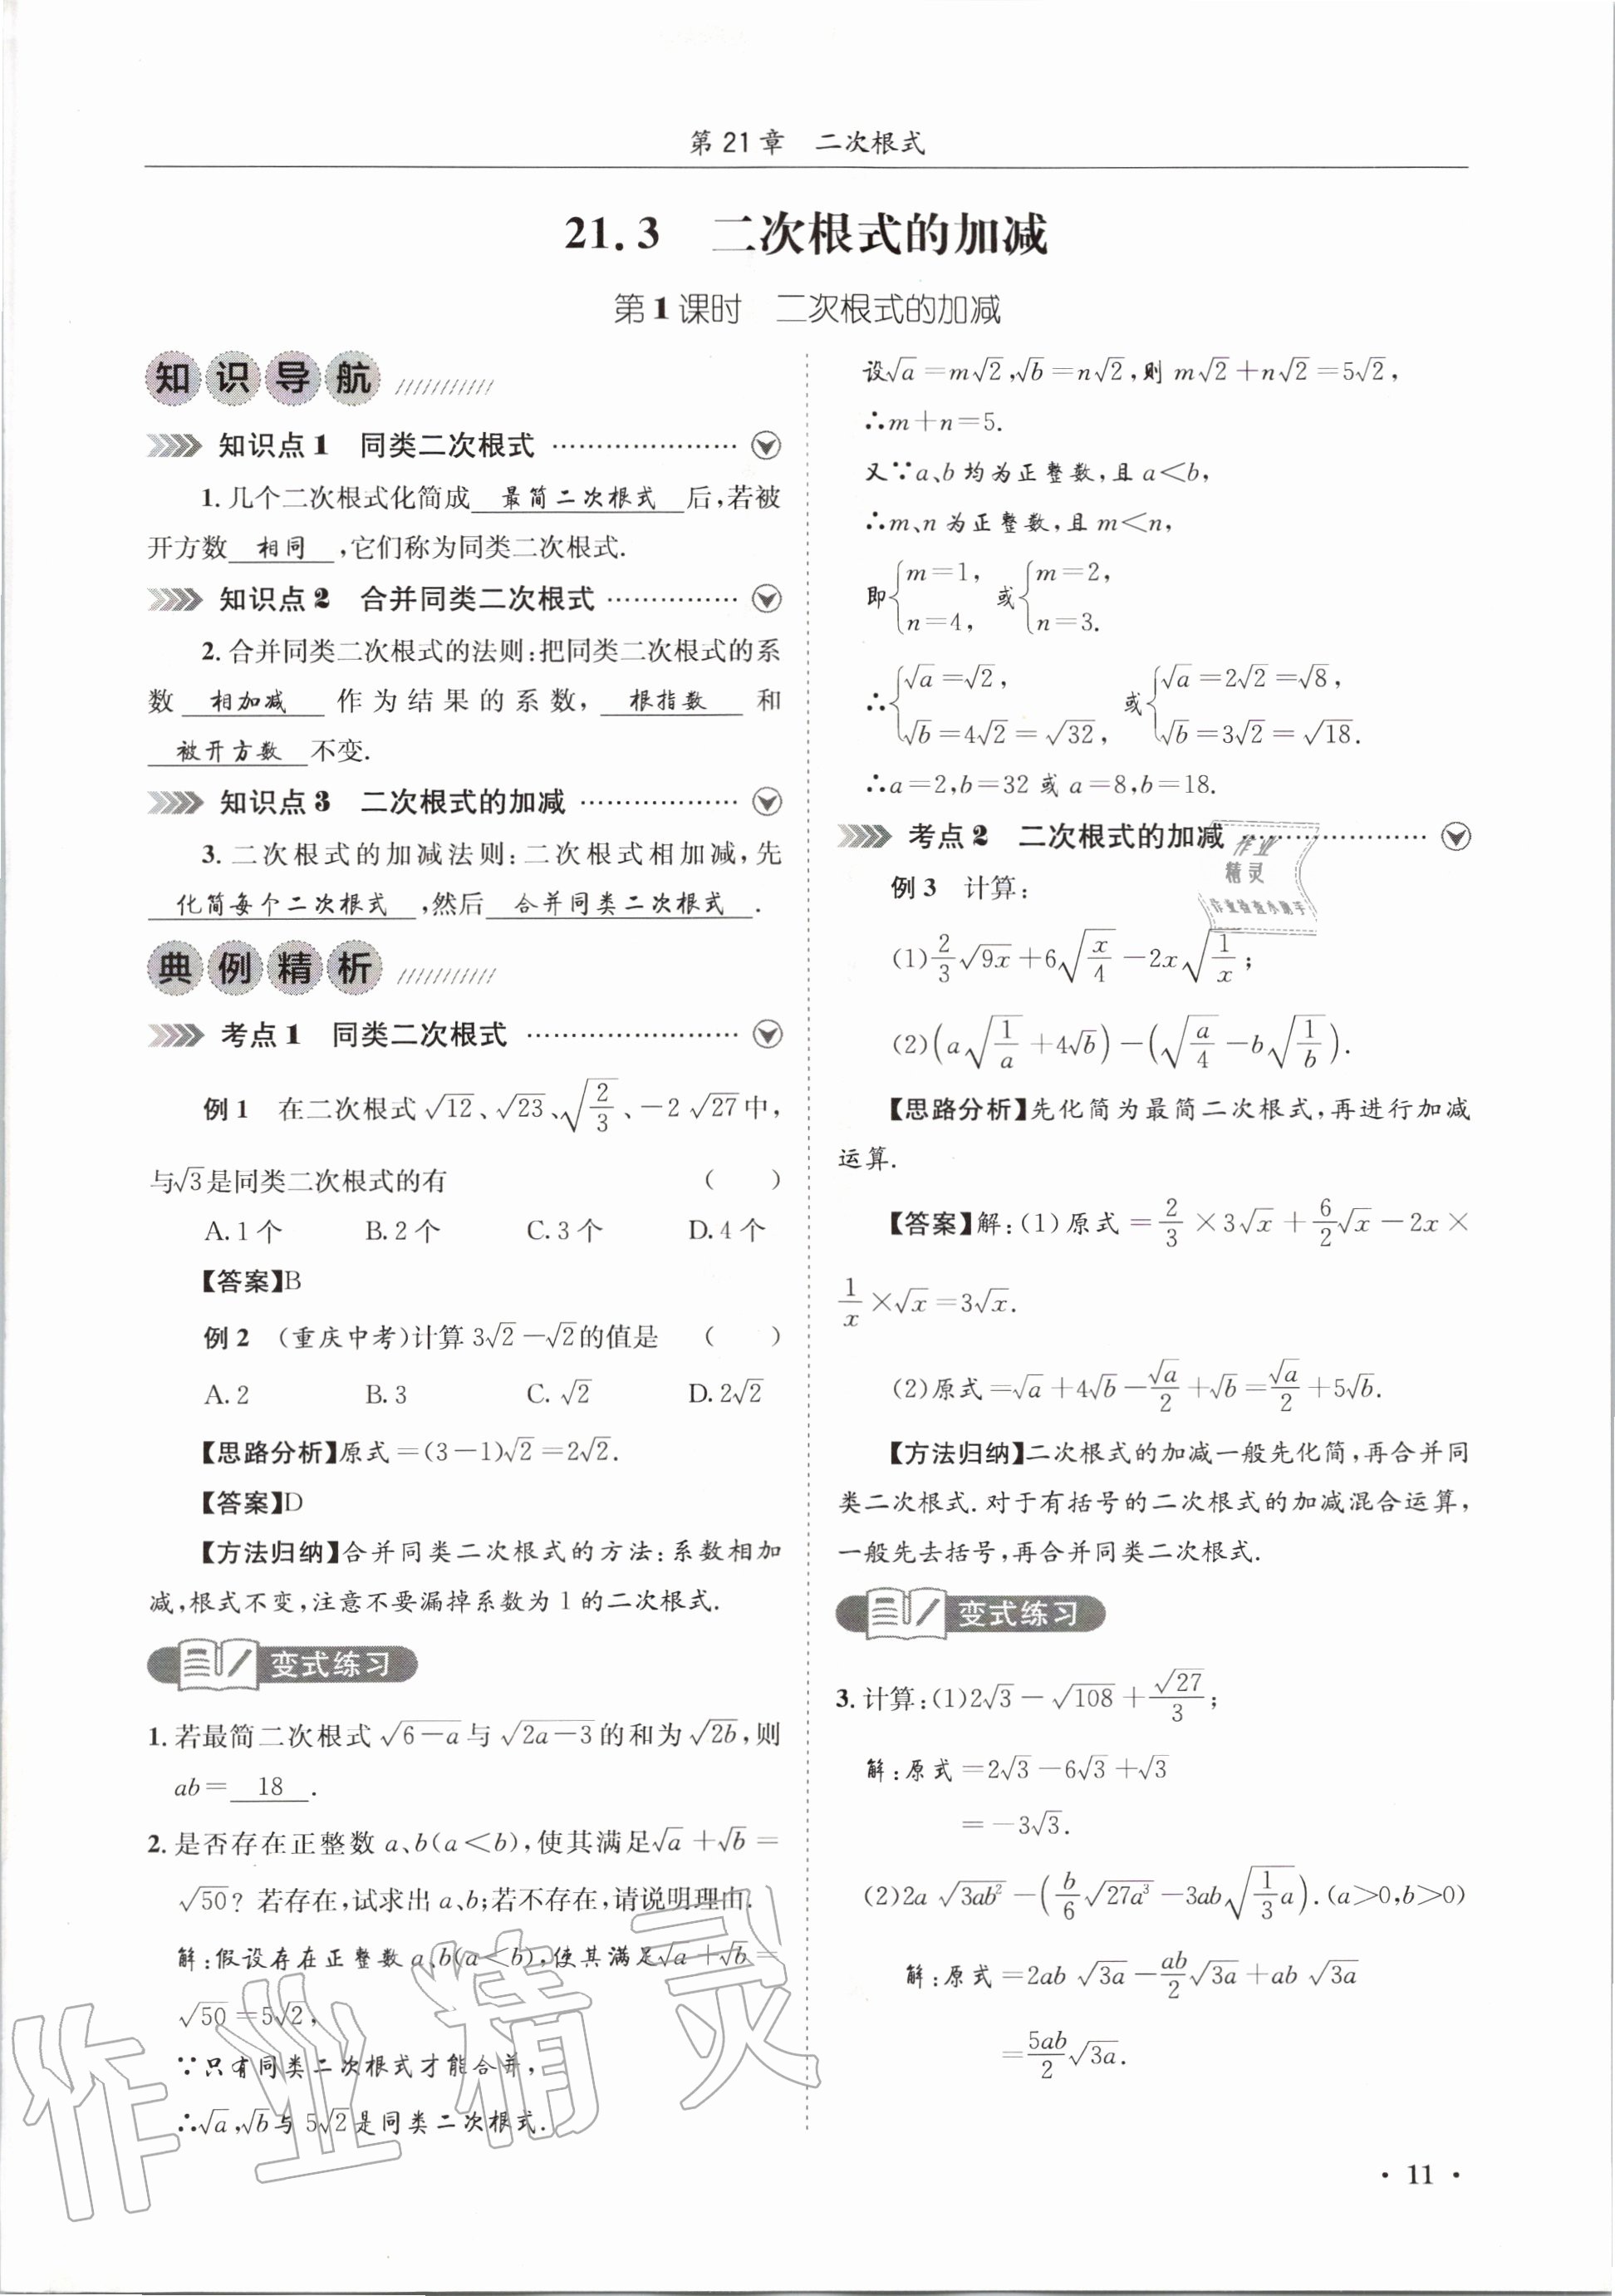 第 21 章　二次根式
21.3　二次根式的加减
第 1 课时　二次根式的加减
知识导航
知识点 1　同类二次根式
1. 几个二次根式化简成 最简二次根式 后,若被
开方数 相同 ,它们称为同类二次根式.
知识点 2　合并同类二次根式
2. 合并同类二次根式的法则:把同类二次根式的系
数 相加减 作为结果的系数, 根指数 和
被开方数 不变.
知识点 3　二次根式的加减
3. 二次根式的加减法则:二次根式相加减,先
化简每个二次根式 ,然后 合并同类二次根式 .
典例精析
考点 1　同类二次根式
例 1　在二次根式 √12、√23、√(2/3)、-2√27 中,
与√3是同类二次根式的有 (　　)
A. 1 个　B. 2 个　C. 3 个　D. 4 个
【答案】B
例 2　(重庆中考)计算 3√2-√2的值是 (　　)
A. 2　B. 3　C. √2　D. 2√2
【思路分析】原式=(3-1)√2=2√2.
【答案】D
【方法归纳】合并同类二次根式的方法:系数相加
减,根式不变,注意不要漏掉系数为 1 的二次根式.
变式练习
1. 若最简二次根式 √(6-a) 与 √(2a-3) 的和为 √(2b),则
ab= 18 .
2. 是否存在正整数 a、b(a<b),使其满足√a+√b=
√50? 若存在,试求出 a、b;若不存在,请说明理由.
解:假设存在正整数 a、b(a<b),使其满足√a+√b=
√50=5√2,
∵只有同类二次根式才能合并,
∴√a,√b与 5√2是同类二次根式.
设√a=m√2,√b=n√2,则 m√2+n√2=5√2,
∴m+n=5.
又∵a、b 均为正整数,且 a<b,
∴m、n 为正整数,且 m<n,
即{m=1, n=4, 或{m=2, n=3.
∴{√a=√2, √b=4√2=√32, 或{√a=2√2=√8, √b=3√2=√18.
∴a=2,b=32 或 a=8,b=18.
考点 2　二次根式的加减
作业
精灵
作业检查小助手
例 3　计算:
(1) 2/3 √(9x)+6√(x/4)-2x√(1/x);
(2)(a√(1/a)+4√b)-(√(a/4)-b√(1/b)).
【思路分析】先化简为最简二次根式,再进行加减
运算.
【答案】解:(1)原式=2/3×3√x+6/2 √x-2x×
1/x×√x=3√x.
(2)原式=√a+4√b-√a/2+√b=√a/2+5√b.
【方法归纳】二次根式的加减一般先化简,再合并同
类二次根式. 对于有括号的二次根式的加减混合运算,
一般先去括号,再合并同类二次根式.
变式练习
3. 计算:(1)2√3-√108+√27/3;
解:原式=2√3-6√3+√3
=-3√3.
(2)2a√(3ab²)-(b/6 √(27a³)-3ab√(1/3 a)).(a>0,b>0)
解:原式=2ab√(3a)-ab/2 √(3a)+ab√(3a)
=5ab/2 √(3a).
作业精灵
· 11 ·